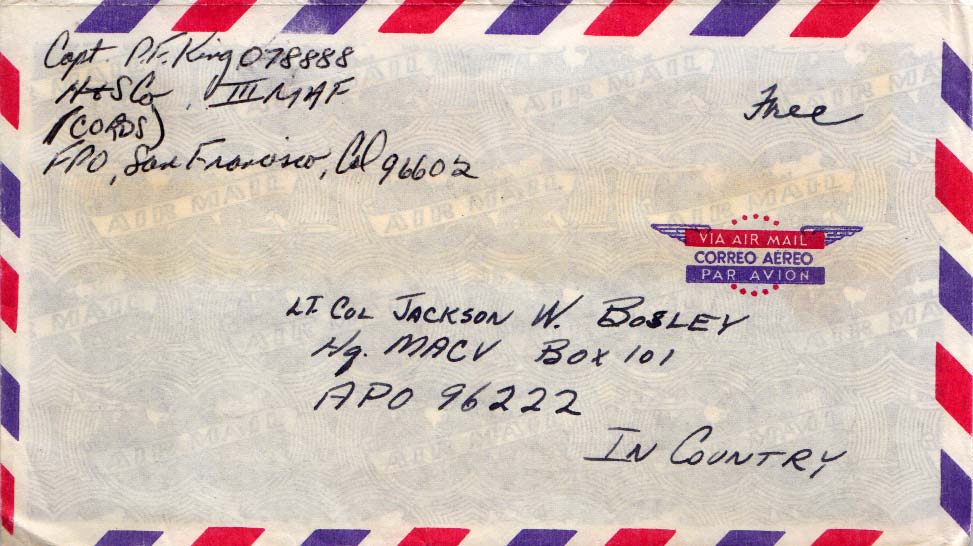 Capt. P.F. King 078888
H&S Co, III MAF
(CORDS)
FPO, San Francisco, Cal 96602
Free
VIA AIR MAIL
CORREO AÉREO
PAR AVION
LT. COL JACKSON W. BOSLEY
Hq. MACV BOX 101
APO 96222
IN COUNTRY
AIR MAIL
AIR MAIL
AIR MAIL